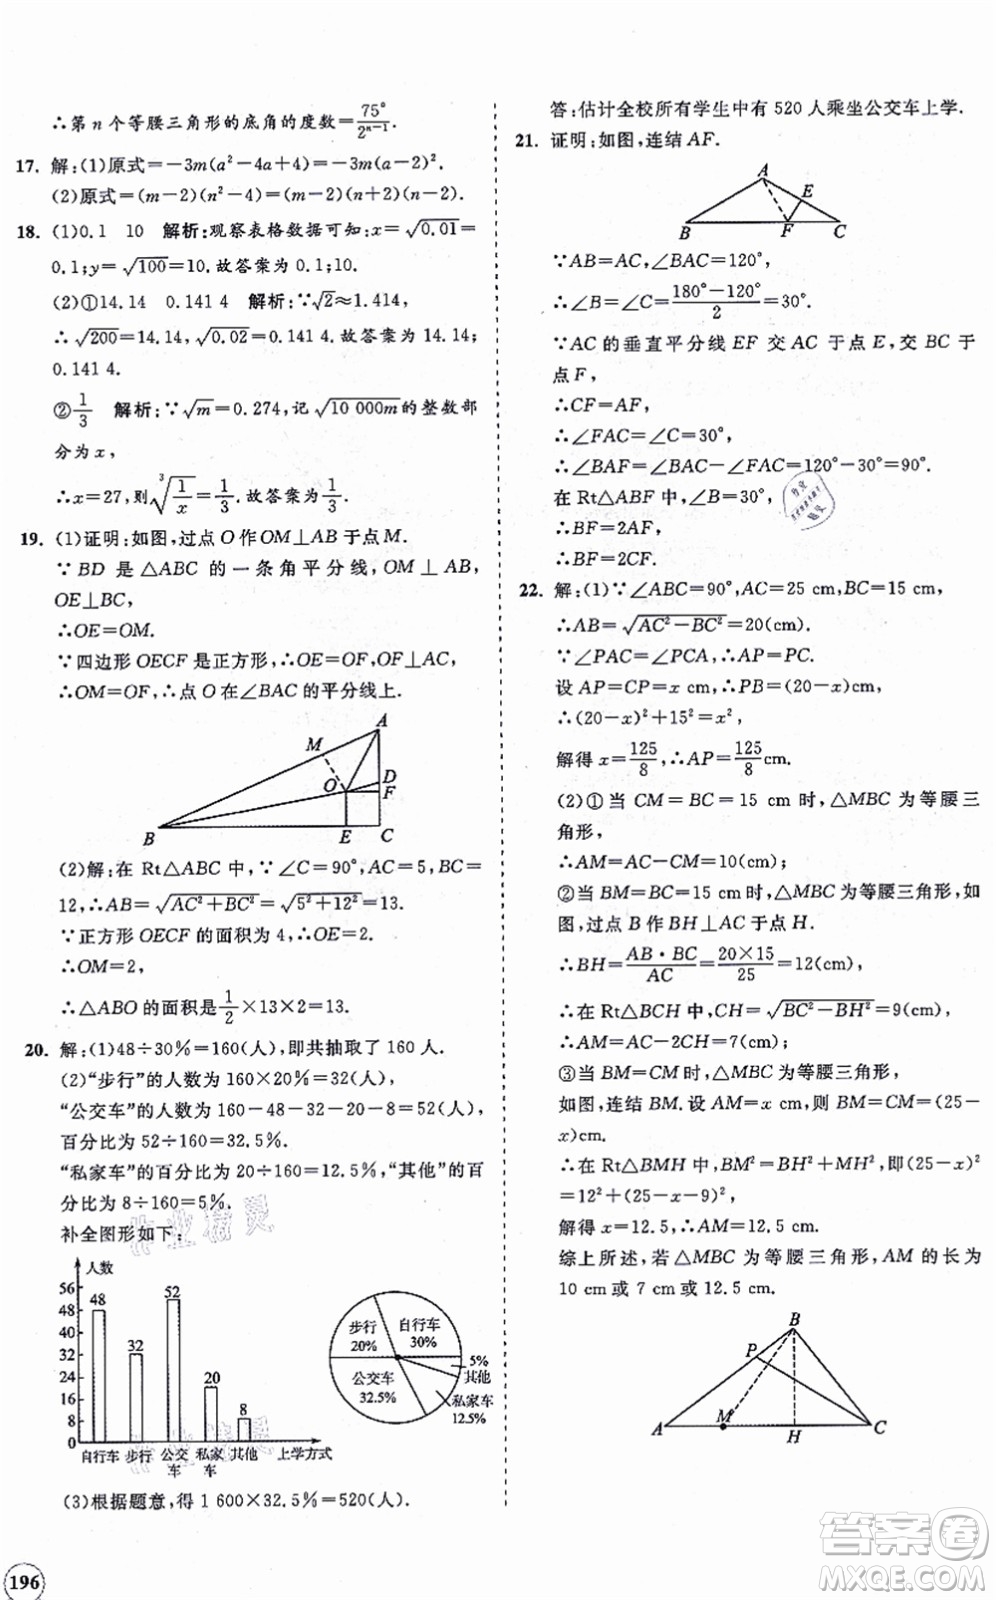 ∴第 n 个等腰三角形的底角的度数=75°/2ⁿ⁻¹.
17. 解:(1)原式=-3m(a²-4a+4)=-3m(a-2)².
(2)原式=(m-2)(n²-4)=(m-2)(n+2)(n-2).
18. (1)0.1 10 解析:观察表格数据可知:x=√0.01=
0.1;y=√100=10.故答案为 0.1;10.
(2)①14.14 0.141 4 解析:∵√2≈1.414,
∴√200=14.14,√0.02=0.141 4.故答案为 14.14;
0.141 4.
②1/3 解析:∵√m=0.274,记√10 000m的整数部
分为 x,
∴x=27,则∛(1/x)=1/3.故答案为 1/3.
19. (1)证明:如图,过点 O 作 OM⊥AB 于点 M.
∵ BD 是 △ABC 的一条角平分线, OM ⊥ AB,
OE⊥BC,
∴OE=OM.
∵四边形 OECF 是正方形,∴OE=OF,
∴OM=OF,∴点 O 在∠BAC 的平分线上.
A
M
O
D
F
B
E
C
(2)解:在 Rt△ABC 中,∵∠C=90°,AC=5,BC=
12,∴AB=√AC²+BC²=√5²+12²=13.
∵正方形 OECF 的面积为 4,∴OE=2.
∴OM=2,
∴△ABO 的面积是 1/2×13×2=13.
20. 解:(1)48÷30%=160(人),即共抽取了 160 人.
(2)“步行”的人数为 160×20%=32(人),
“公交车”的人数为 160-48-32-20-8=52(人),
百分比为 52÷160=32.5%,
“私家车”的百分比为 20÷160=12.5%,“其他”的百
分比为 8÷160=5%.
补全图形如下:
人数
56
48
40
32
24
16
8
0
48
32
52
20
8
自行车 步行 公交车 私家车 其他 上学方式
步行 20%
自行车 30%
5% 其他
公交车 32.5%
私家车 12.5%
(3)根据题意,得 1 600×32.5%=520(人).
196
答:估计全校所有学生中有 520 人乘坐公交车上学.
21. 证明:如图,连结 AF.
A
E
B
F
C
∵AB=AC,∠BAC=120°,
∴∠B=∠C=(180°-120°)/2=30°.
∵AC 的垂直平分线 EF 交 AC 于点 E,交 BC 于
点 F,
∴CF=AF,
∴∠FAC=∠C=30°,
∴∠BAF=∠BAC-∠FAC=120°-30°=90°.
在 Rt△ABF 中,∠B=30°,
∴BF=2AF,
∴BF=2CF.
22. 解:(1)∵∠ABC=90°,AC=25 cm,BC=15 cm,
∴AB=√AC²-BC²=20(cm).
∵∠PAC=∠PCA,∴AP=PC.
设 AP=CP=x cm,∴PB=(20-x)cm,
∴(20-x)²+15²=x²,
解得 x=125/8,∴AP=125/8 cm.
(2)①当 CM=BC=15 cm 时,△MBC 为等腰三
角形,
∴AM=AC-CM=10(cm);
②当 BM=BC=15 cm 时,△MBC 为等腰三角形,如
图,过点 B 作 BH⊥AC 于点 H.
∴BH=AB·BC/AC=20×15/25=12(cm),
∴在 Rt△BCH 中,CH=√BC²-BH²=9(cm),
∴AM=AC-2CH=7(cm);
③当 BM=CM 时,△MBC 为等腰三角形,
如图,连结 BM.设 AM=x cm,则 BM=CM=(25-
x)cm.
∴在 Rt△BMH 中,BM²=BH²+MH²,即(25-x)²
=12²+(25-x-9)²,
解得 x=12.5,∴AM=12.5(cm).
综上所述,若△MBC 为等腰三角形,AM 的长为
10 cm 或 7 cm 或 12.5 cm.
B
P
A
M
H
C
答案卷
MXQE.COM
作业精灵
作业精灵